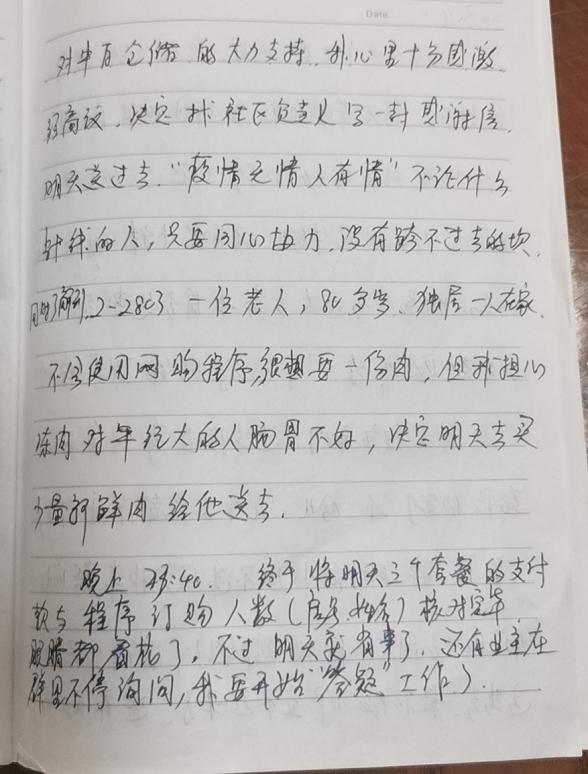 Date
对中百仓储的大力支持,我心里十分感激,
经商议,决定找社区负责人写一封感谢信,
明天送过去。“疫情无情人有情”不论什么
的人,只要同心协力,没有跨不过去的坎,
2-2803一位老人,80多岁、独居一人在家,
不会使用网购程序,很想要一份肉,但我担心
冻肉对年纪大的人肠胃不好,决定明天去买
少量新鲜肉给他送去。
晚上23:40. 终于将明天三个套餐的支付
款与程序订购人数(房号、姓名)核对完毕,
眼睛都看花了,不过明天就有事了,还有业主在
群里不停询问,我要开始“答疑”工作了。